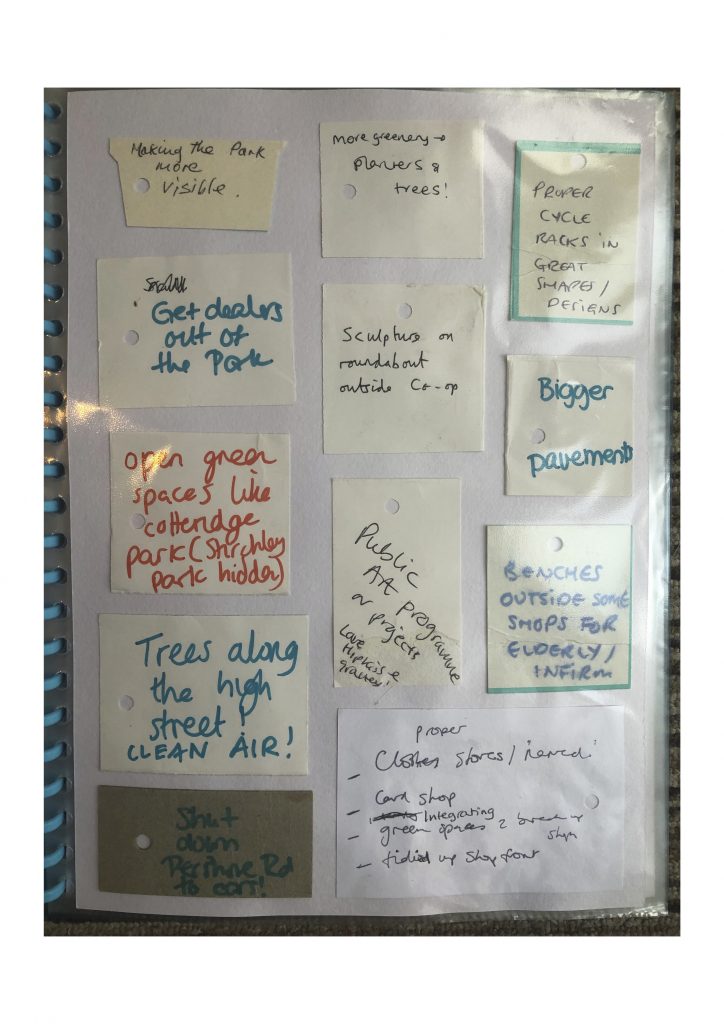 Making the Park
more
visible.
Get dealers
out of
the Park
open green
spaces like
cotteridge
park (Stirchley
park hidden)
Trees along
the high
street!
CLEAN AIR!
Shut
down
Pershore Rd
to cars!
more greenery →
planters &
trees!
Sculpture on
roundabout
outside Co-op
Public
Art programme
or projects
Love
Hipkiss &
Graney!
proper
- Clothes stores /
- Card shop
Integrating
- green spaces 2 break up
shops
- tidied up shop front
PROPER
CYCLE
RACKS IN
GREAT
SHAPES/
DESIGNS
Bigger
pavements
BENCHES
OUTSIDE SOME
SHOPS FOR
ELDERLY/
INFIRM